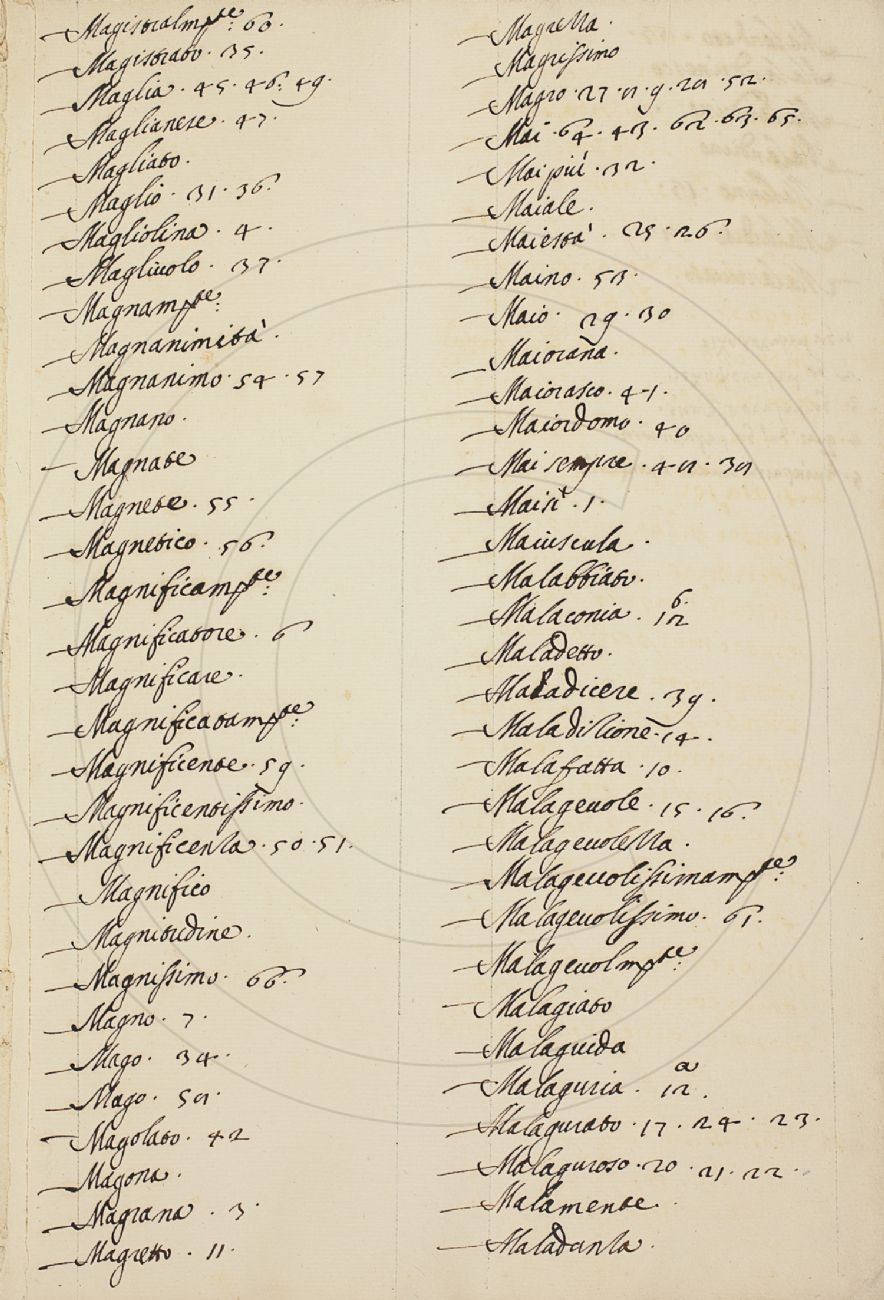 — Magistralmte: 60.
— Magistrato. 35.
— Maglia. 45. 46. 49.
— Maglianese. 47.
— Magliato.
— Maglio. 31. 36.
— Magliolina. 4.
— Magliuolo. 37.
— Magnamte:
— Magnanimità.
— Magnanimo. 54. 57
— Magnano.
— Magnate
— Magnete. 55.
— Magnetico. 56.
— Magnificamte:
— Magnificatore. 6
— Magnificare.
— Magnificatamte:
— Magnificente. 59.
— Magnificentissimo.
— Magnificenza. 50. 51.
— Magnifico
— Magnitudine.
— Magnissimo. 66.
— Magno. 7.
— Mago. 34.
— Mago. 5a.
— Magolato. 42
— Magona.
— Magrana. 3.
— Magretto. 11.
— Magrezza.
— Magrissimo
— Magro. 27. n. 9. 2a. 52.
— Mai. 64. 43. 62. 63. 65.
— Mai più. 32.
— Maiale.
— Maiestà. 25. 26.
— Maino. 53.
— Maio. 29. 30
— Maiorana.
— Maiorasco. 41.
— Maiordomo. 40
— Mai sempre. 4a. 3a
— Maisì. 1.
— Maiuscula.
— Malabbiato.
— Malaconia. 12 b.
— Maladetto.
— Maladicere. 39.
— Maladizione. 14.
— Malafatta. 10.
— Malageuole. 15. 16.
— Malageuolezza.
— Malageuolissimamte:
— Malageuolissimo. 61.
— Malageuolmte:
— Malagiato
— Malaguida
— Malaguria. 12 a.
— Malagurato. 17. 24. 23.
— Malaguroso. 20. 21. 22.
— Malamente.
— Maladanza.